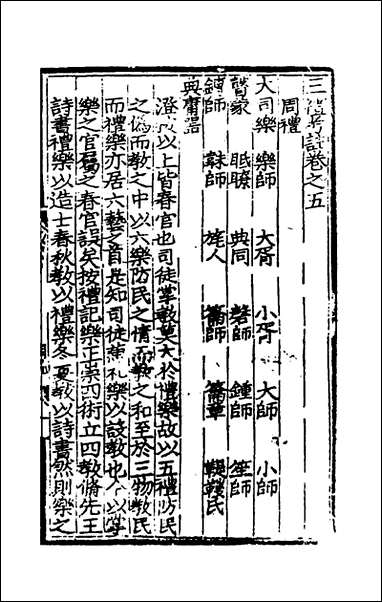 三禮考註卷之五
周禮
大司樂 樂師 大胥 小胥 大師 小師
瞽矇 眡瞭 典同 磬師 鍾師 笙師
鎛師 韎師 旄人 籥師 籥章 鞮鞻氏
典庸器
澄以上皆春官也司徒掌敎莫大於禮樂故以五禮防民
之偽而敎之中以六樂防民之情而敎之和至於三物敎民
而禮樂亦居六藝之首是知司徒禮樂以設敎也今以等
樂之官屬之春官誤矣按禮記樂正崇四術立四敎脩先王
詩書禮樂以造士春秋敎以禮樂冬夏敎以詩書然則樂之